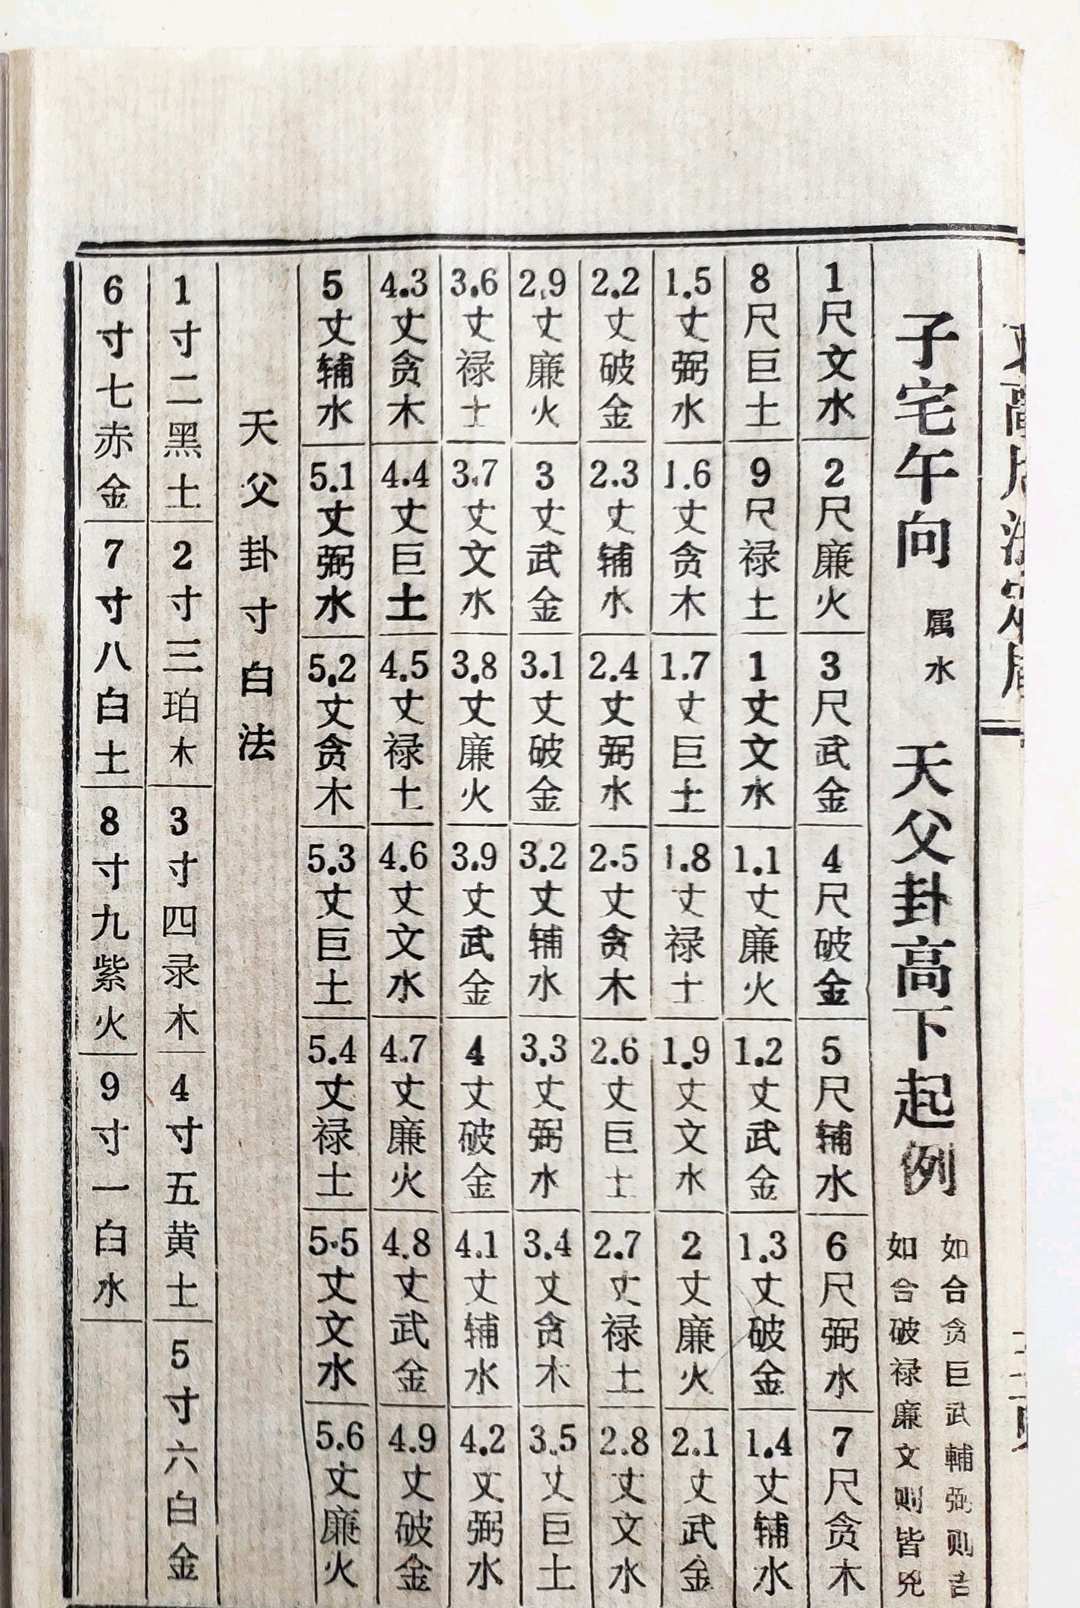 子宅午向 属水 天父卦高下起例
如合贪巨武輔弼则吉
如合破禄廉文则皆兇
1尺文水
2尺廉火
3尺武金
4尺破金
5尺辅水
6尺弼水
7尺贪木
8尺巨土
9尺禄土
1丈文水
1.1丈廉火
1.2丈武金
1.3丈破金
1.4丈辅水
1.5丈弼水
1.6丈贪木
1.7丈巨土
1.8丈禄土
1.9丈文水
2丈廉火
2.1丈武金
2.2丈破金
2.3丈辅水
2.4丈弼水
2.5丈贪木
2.6丈巨土
2.7丈禄土
2.8丈文水
2.9丈廉火
3丈武金
3.1丈破金
3.2丈辅水
3.3丈弼水
3.4丈贪木
3.5丈巨土
3.6丈禄土
3.7丈文水
3.8丈廉火
3.9丈武金
4丈破金
4.1丈辅水
4.2丈弼水
4.3丈贪木
4.4丈巨土
4.5丈禄土
4.6丈文水
4.7丈廉火
4.8丈武金
4.9丈破金
5丈辅水
5.1丈弼水
5.2丈贪木
5.3丈巨土
5.4丈禄土
5.5丈文水
5.6丈廉火
天父卦寸白法
1寸二黑土
2寸三珀木
3寸四录木
4寸五黄土
5寸六白金
6寸七赤金
7寸八白土
8寸九紫火
9寸一白水